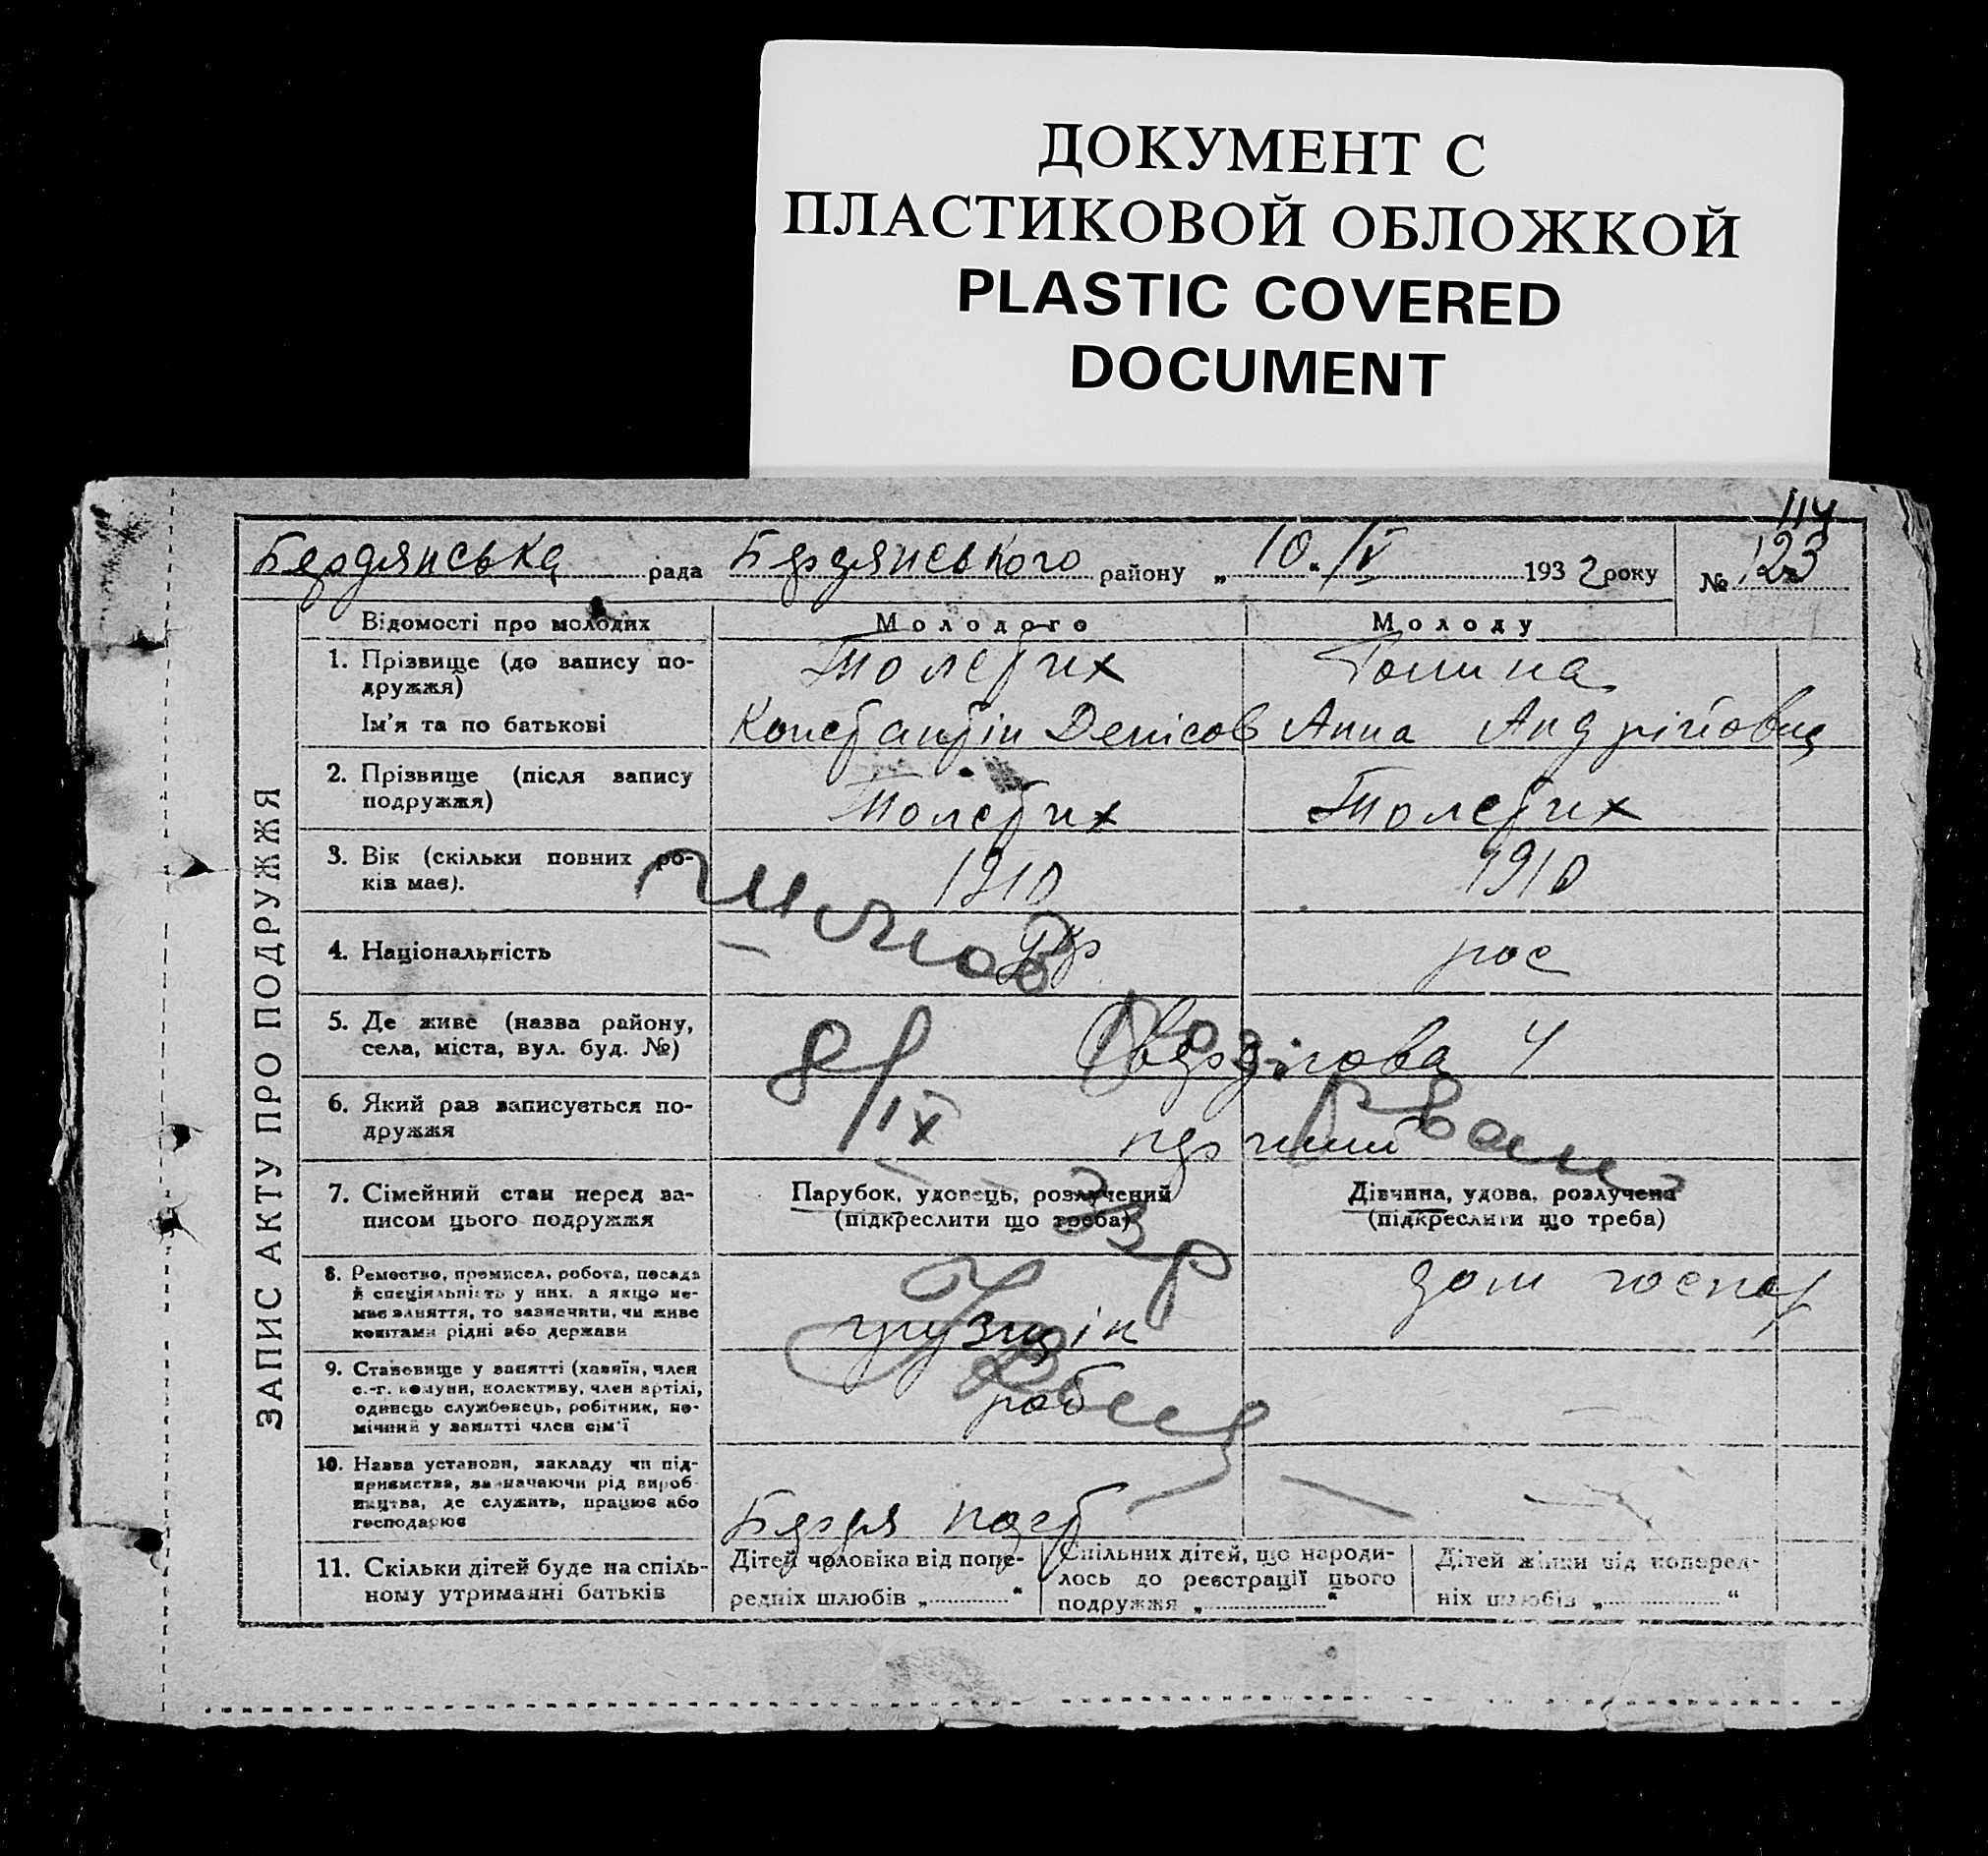 ДОКУМЕНТ С
ПЛАСТИКОВОЙ ОБЛОЖКОЙ
PLASTIC COVERED
DOCUMENT
114
Бердянська рада Бердянського району „ 10. IV 1932 року № 123
ЗАПИС АКТУ ПРО ПОДРУЖЖЯ
Відомості про молодих Молодого Молоду
1. Прізвище (до запису по-
дружжя)
Толстих
Ім'я та по батькові
Константін Денісов Анна Андрійовна
2. Прізвище (після запису
подружжя)
Толстих Толстих
3. Вік (скільки повних ро-
ків має).
1910 1910
4. Національність
укр рос
5. Де живе (назва району,
села, міста, вул. буд. №)
Свердлова 4
6. Який раз записується по-
дружжя
перший
7. Сімейний стан перед за-
писом цього подружжя
Парубок, удовець, розлучений
(підкреслити що треба)
Дівчина, удова, розлучена
(підкреслити що треба)
8. Ремество, промисел, робота, посада
й спеціяльність у них, а якщо не-
має заняття, то зазначити, чи живе
коштами рідні або держави
грузчік дом госпот
9. Становище у занятті (хазяїн, член
с.-г. комуни, колективу, член артілі,
одинець службовець, робітник, по-
мічний у занятті член сім'ї
роб
10. Назва установи, закладу чи під-
приємства, зазначаючи рід вироб-
ництва, де служить, працює або
господарює
Бердя порт
11. Скільки дітей буде на спіль-
ному утриманні батьків
Дітей чоловіка від попе-
редніх шлюбів „ “
Спільних дітей, що народи-
лось до реєстрації цього
подружжя „ “
Дітей жінки від поперед-
ніх шлюбів „ “
8/IX
33 р